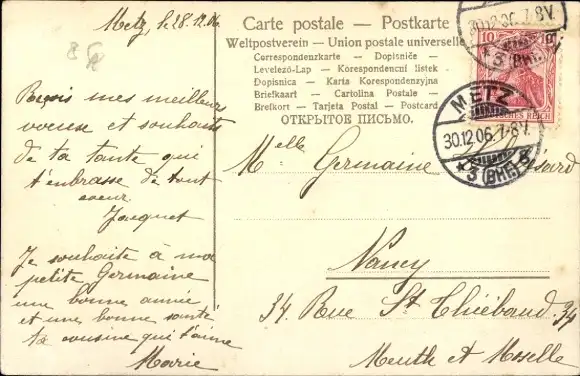 Metz, le 28.12.06.
Carte postale — Postkarte
Weltpostverein — Union postale universelle
Correspondenzkarte — Dopisnice —
Levelező-Lap — Korespondencni listek
Dopisnica — Karta Korespondenzyjna
Briefkaart — Cartolina Postale —
Brefkort — Tarjeta Postal — Postcard
ОТКРЫТОЕ ПИСЬМО.
30.12.06.7-8V.
*3 (BHF) 
10
DEUTSCHES REICH
METZ
30.12.06.7-8V.
*3 (BHF) b
Reçois mes meilleurs
voeux et souhaits
de ta tante qui
t'embrasse de tout
coeur.
Jacquot
Je souhaite à ma
petite Germaine
une bonne année
et une bonne santé
ta cousine qui t'aime
Marie
Melle Germaine
Nancy
34 Rue St Thiébaud 34
Meurth et Moselle